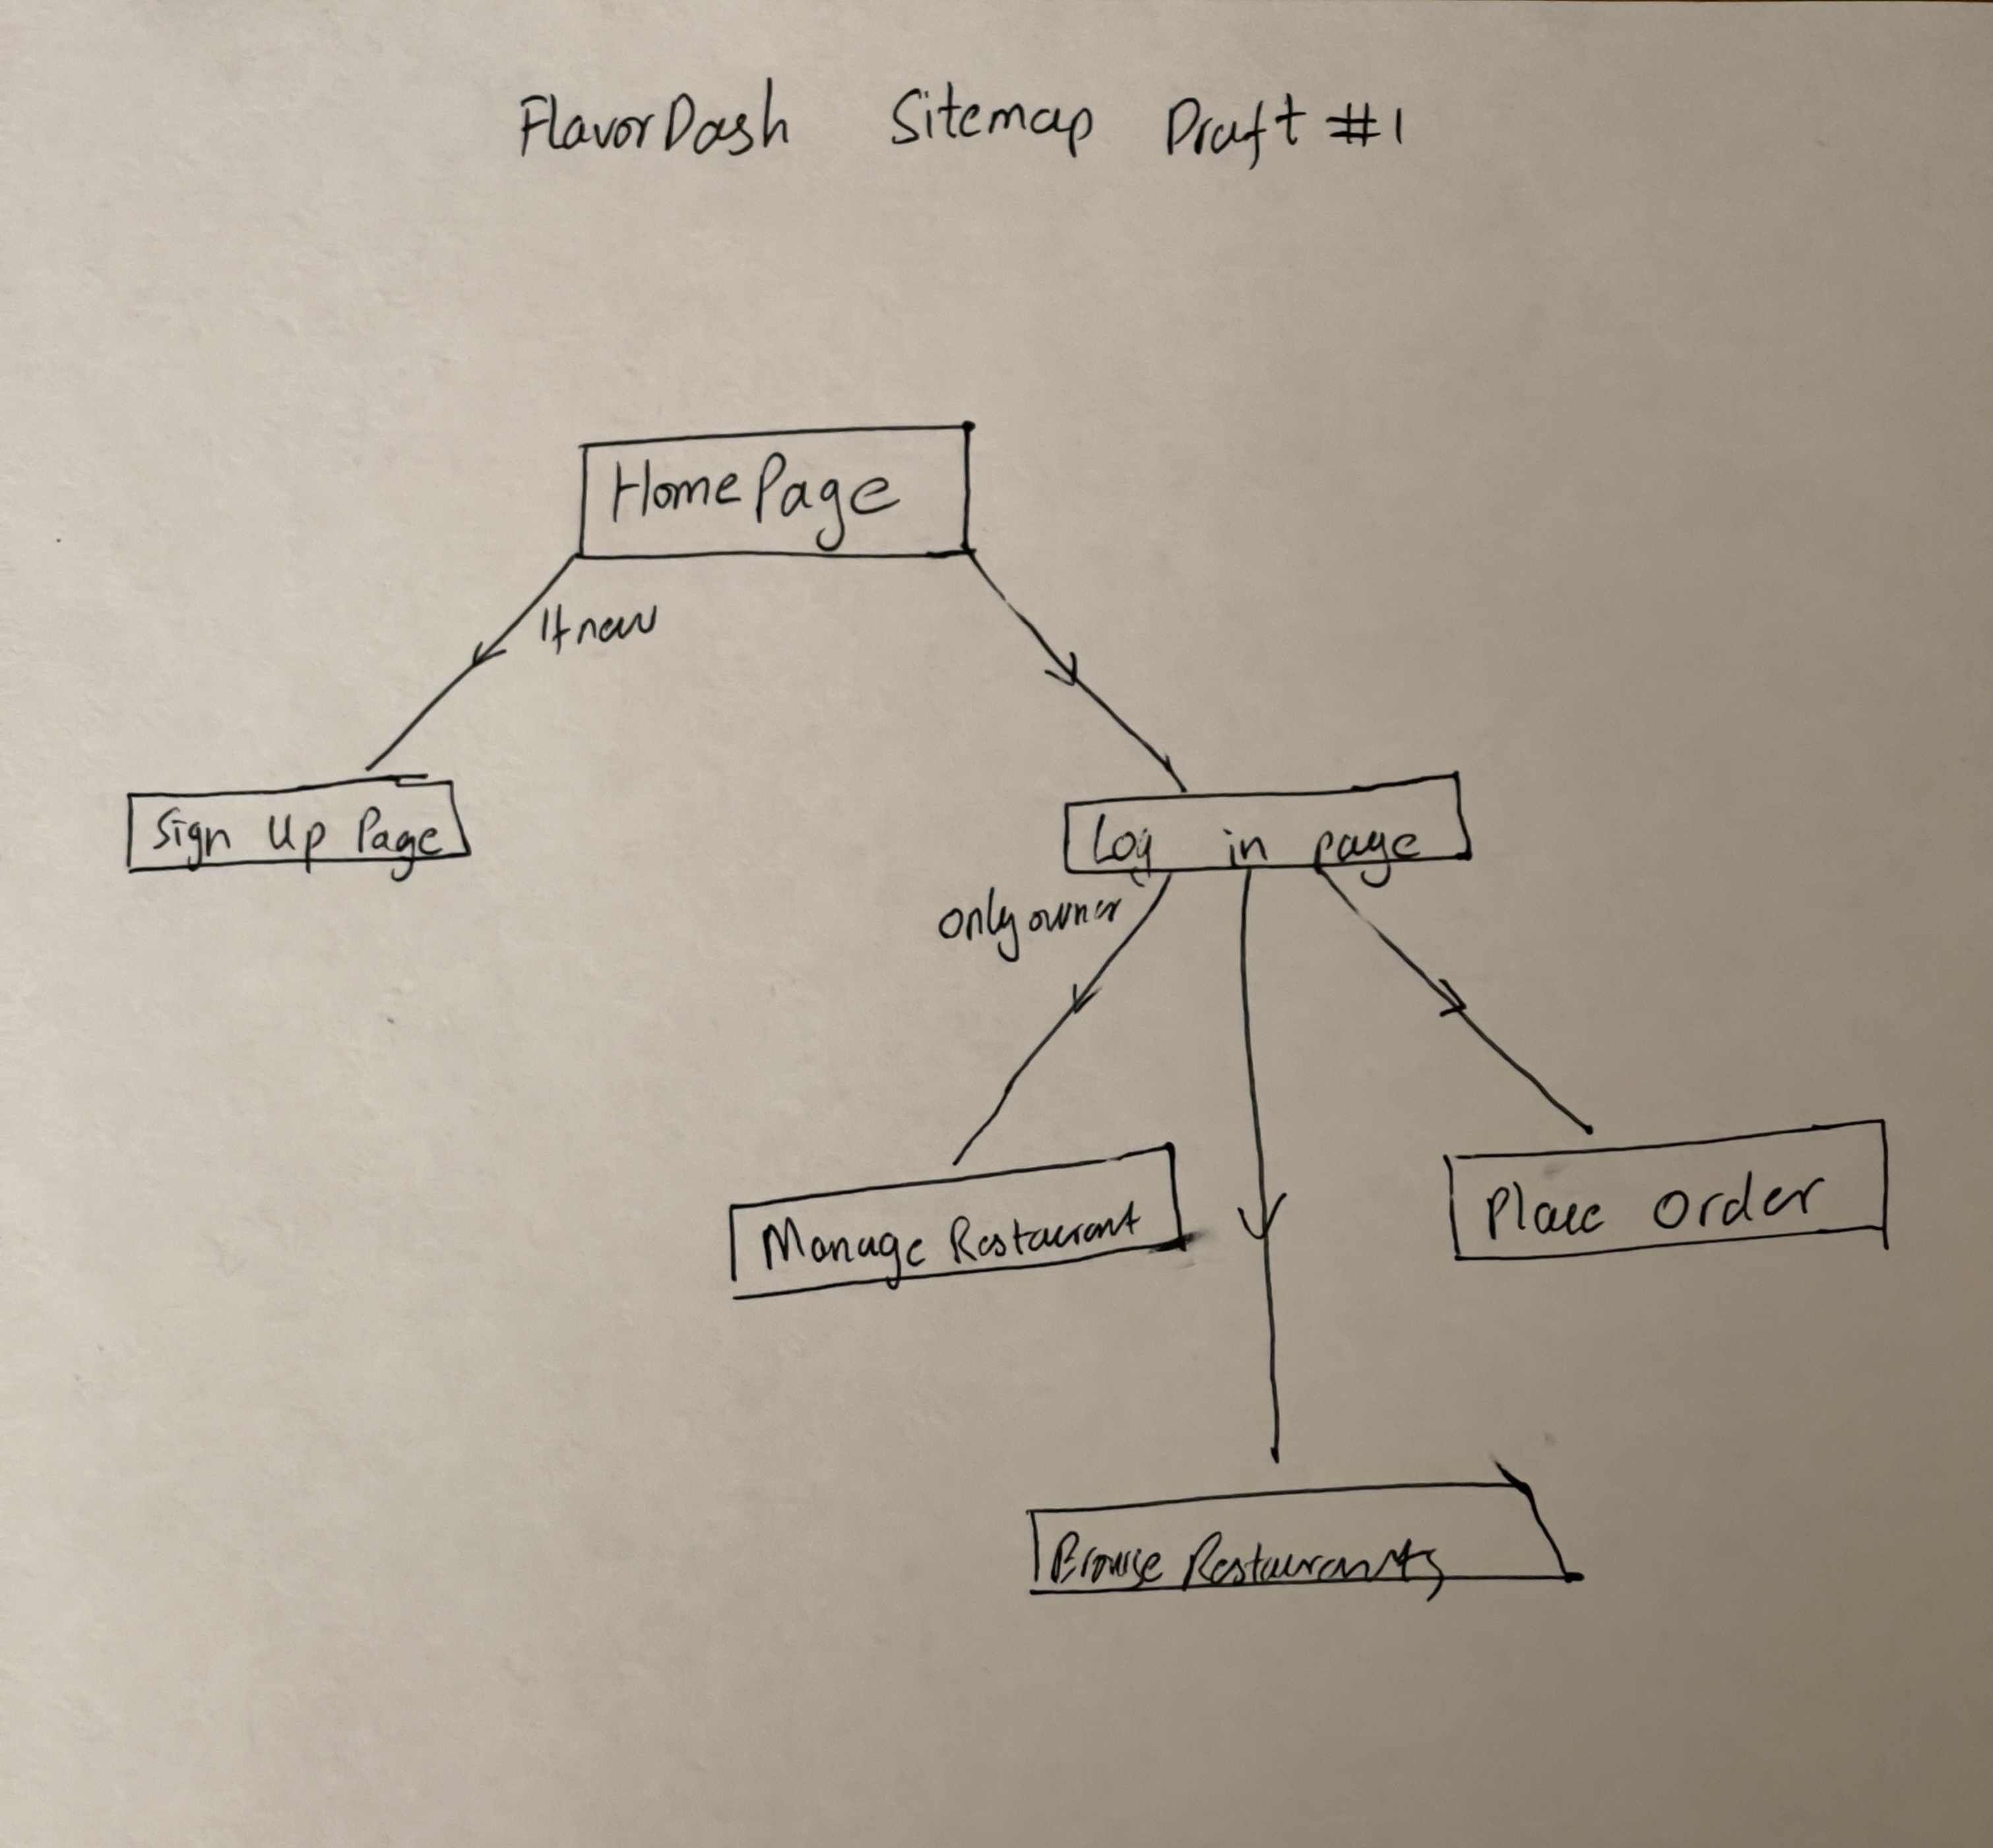 FlavorDash Sitemap Draft #1
HomePage
If new
Sign Up Page
Log in page
only owner
Manage Restaurant
Place Order
Browse Restaurants